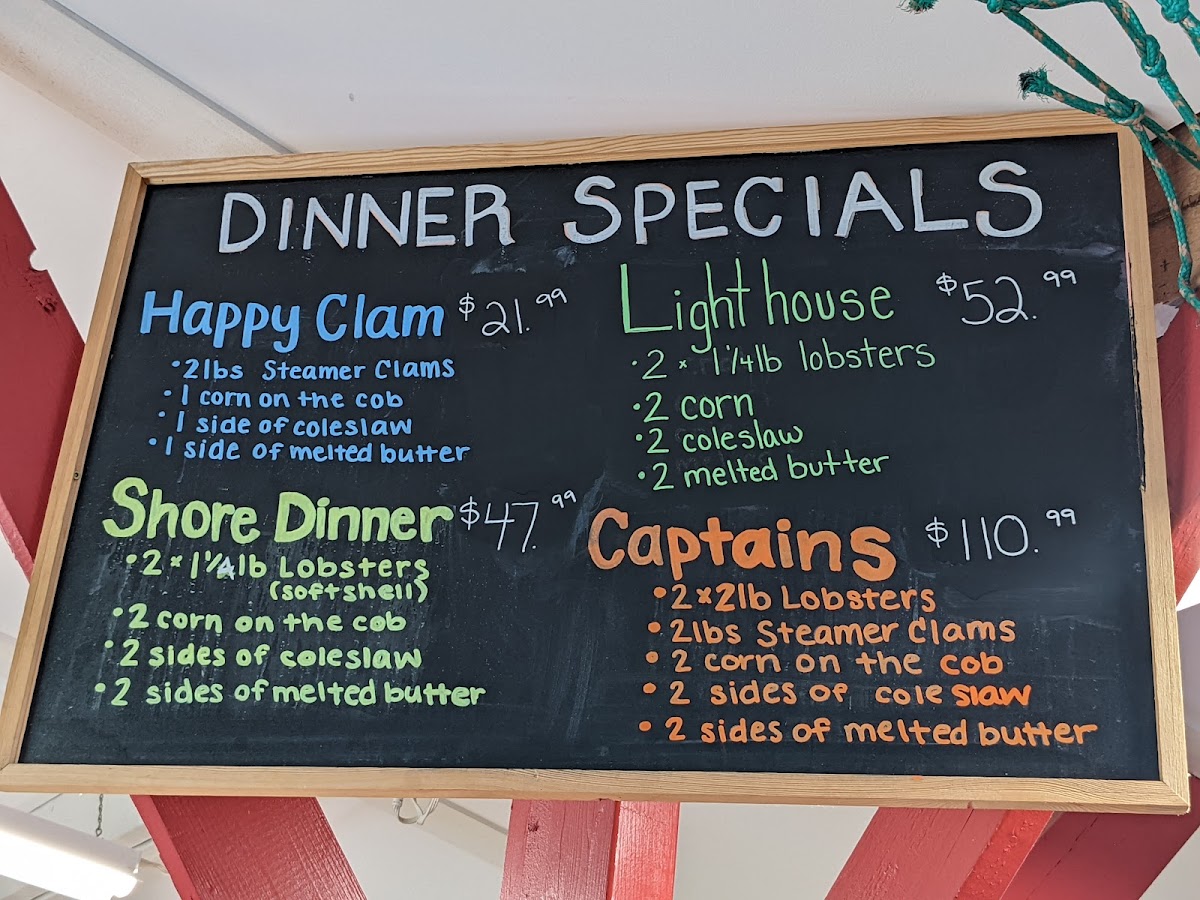 DINNER SPECIALS
Happy Clam $21.99
• 2lbs Steamer Clams
• 1 corn on the cob
• 1 side of coleslaw
• 1 side of melted butter
Shore Dinner $47.99
• 2 × 1 1/4 lb Lobsters
(softshell)
• 2 corn on the cob
• 2 sides of coleslaw
• 2 sides of melted butter
Light house $52.99
• 2 × 1 1/4 lb lobsters
• 2 corn
• 2 coleslaw
• 2 melted butter
Captains $110.99
• 2×2lb Lobsters
• 2lbs Steamer Clams
• 2 corn on the cob
• 2 sides of cole slaw
• 2 sides of melted butter